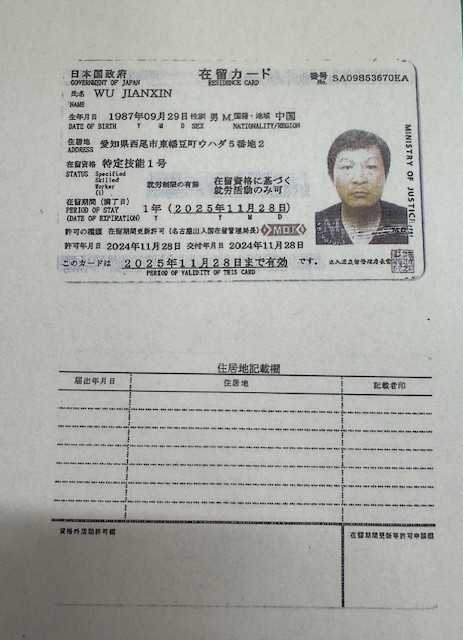 日本国政府 在留カード 番号 SA09853670EA
GOVERNMENT OF JAPAN RESIDENCE CARD No.
氏名 WU JIANXIN
NAME
生年月日 1987年09月29日 性別 男 M. 国籍・地域 中国
DATE OF BIRTH Y M D SEX NATIONALITY/REGION
住居地 愛知県西尾市東幡豆町ウハダ5番地2
ADDRESS
在留資格 特定技能1号
STATUS Specified
Skilled
Worker
(i)
就労制限の有無 在留資格に基づく
就労活動のみ可
在留期間(満了日) 1年(2025年11月28日)
PERIOD OF STAY
(DATE OF EXPIRATION) Y M D
許可の種類 在留期間更新許可(名古屋出入国在留管理局長) MOJ
許可年月日 2024年11月28日 交付年月日 2024年11月28日
このカードは 2025年11月28日まで有効 です。
PERIOD OF VALIDITY OF THIS CARD
MINISTRY OF JUSTICE
出入国在留管理庁長官
住居地記載欄
届出年月日 住居地 記載者印
資格外活動許可欄 在留期間更新等許可申請欄